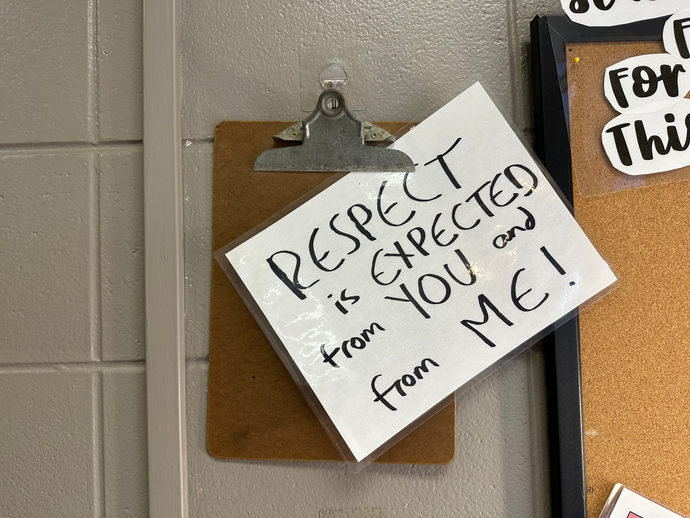 RESPECT
is EXPECTED
from YOU and
from ME!
For